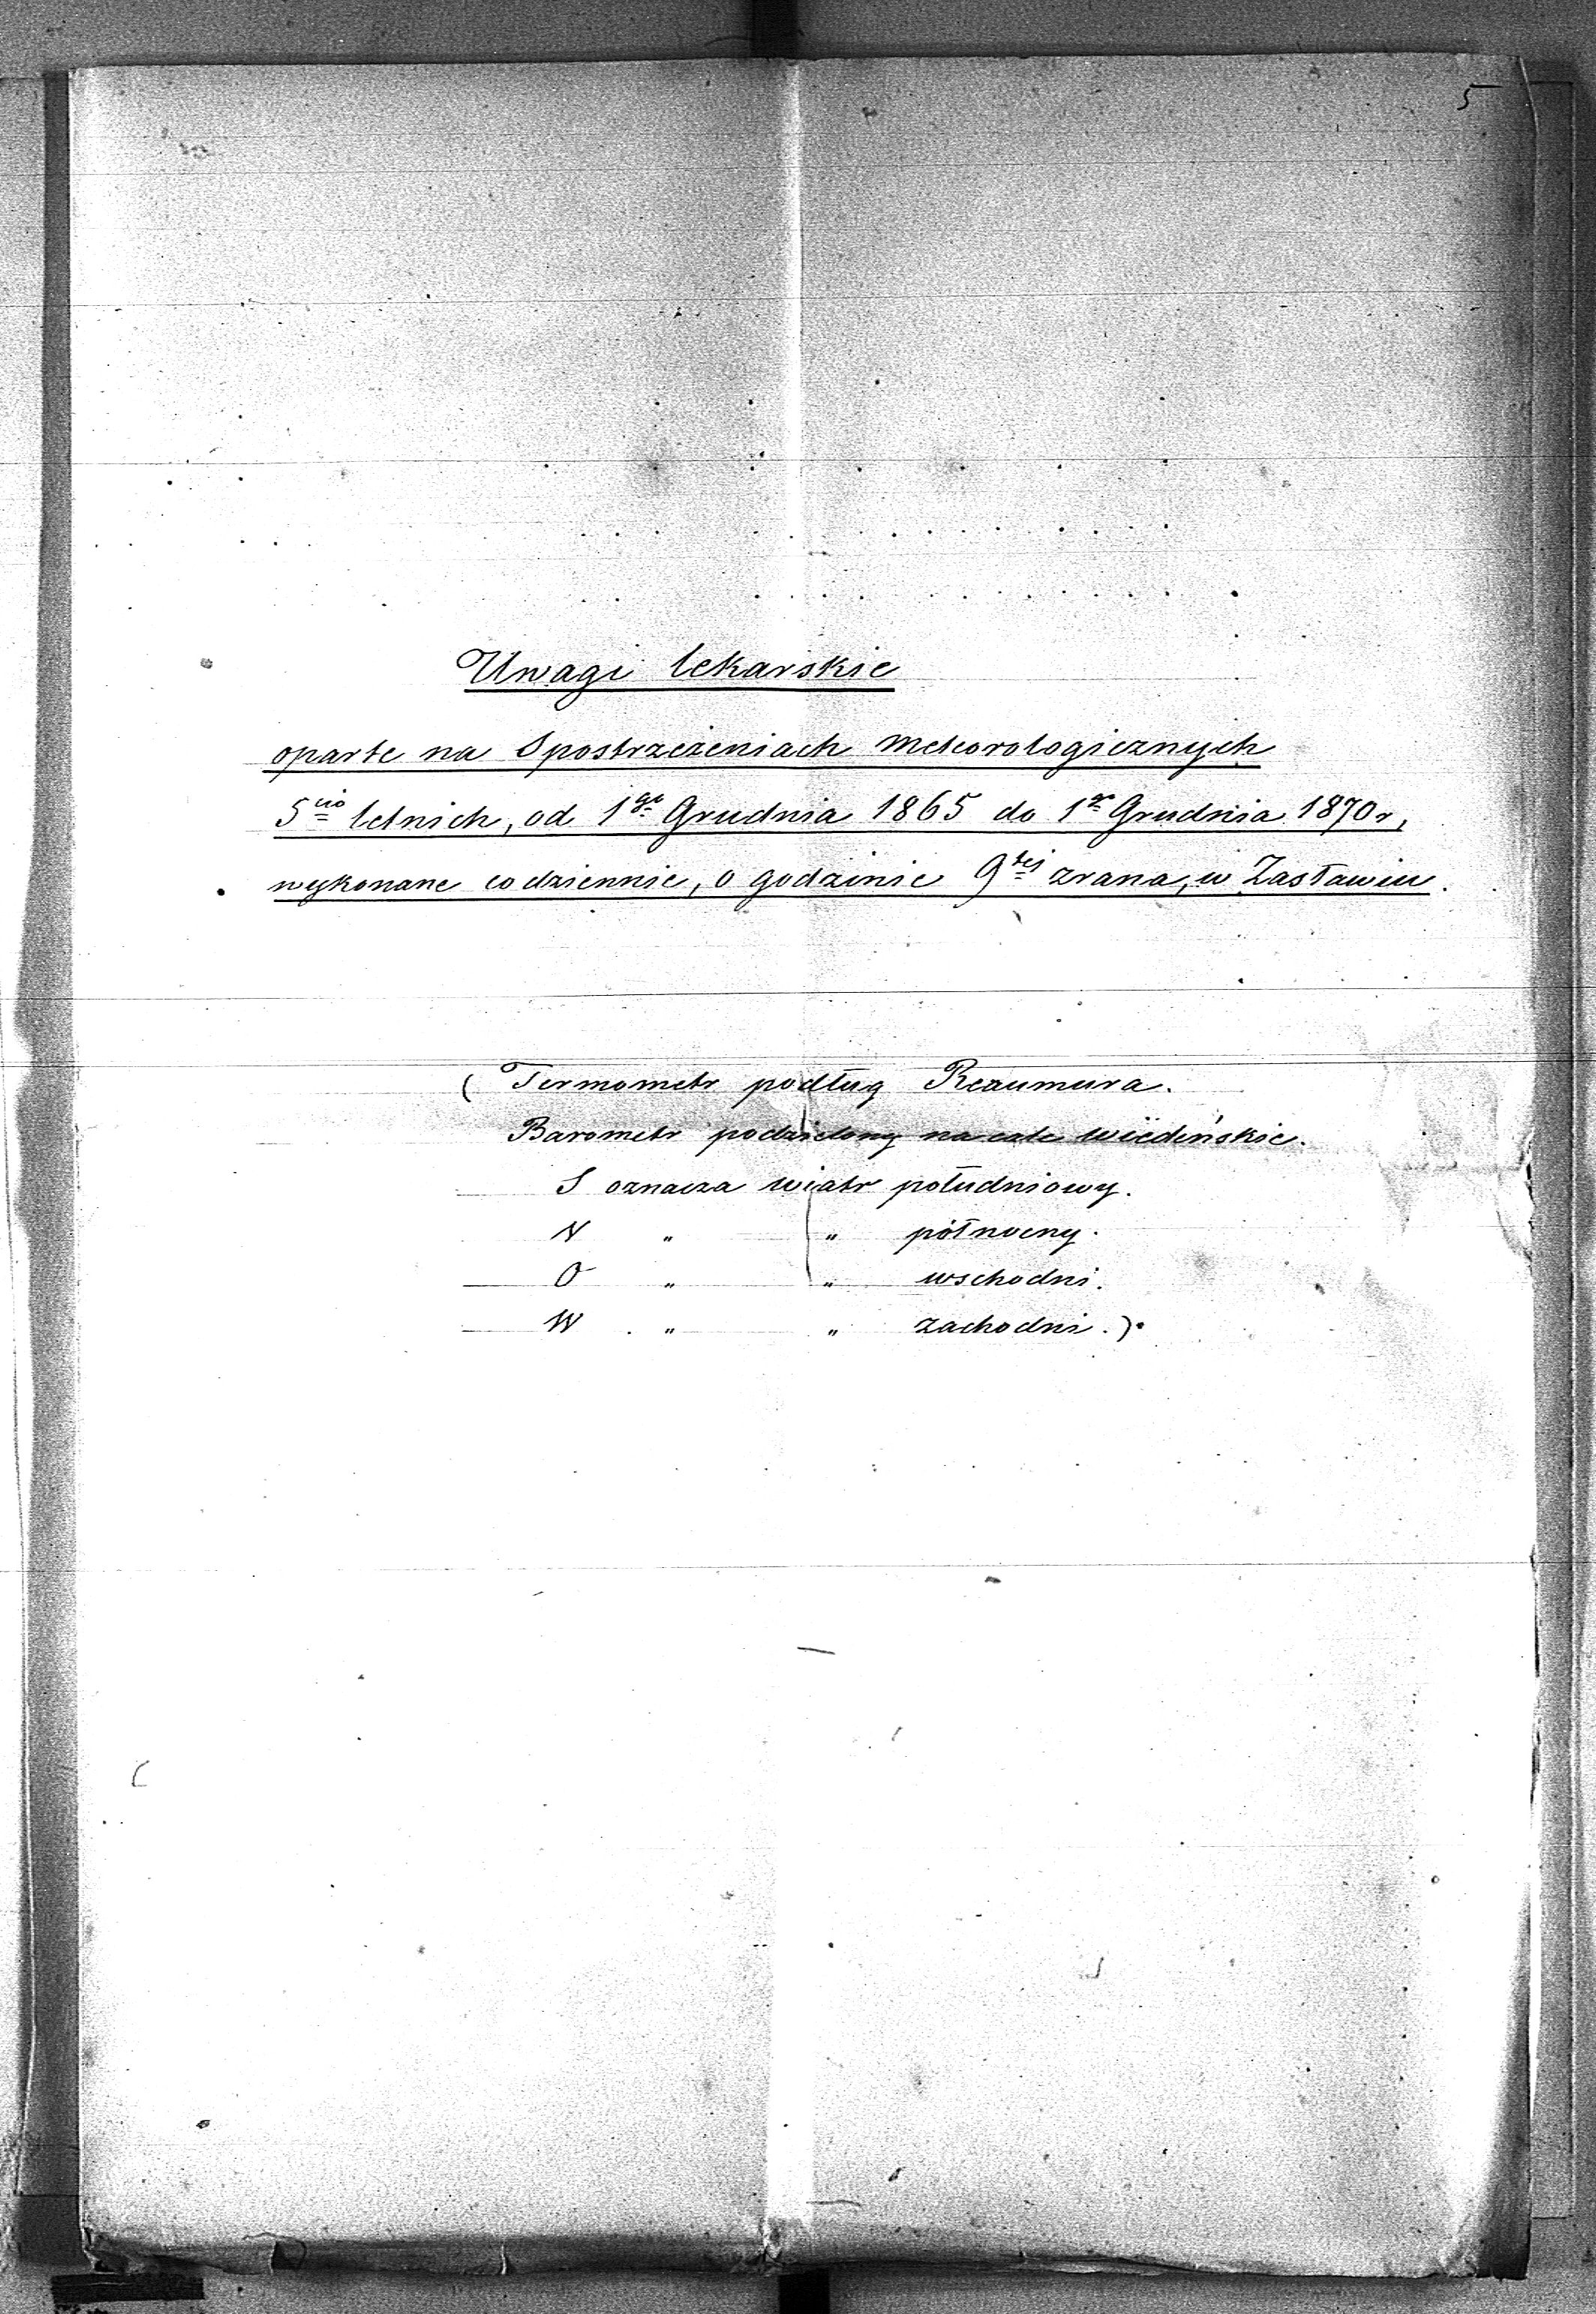 5
Uwagi lekarskie
oparte na Spostrzeżeniach Meteorologicznych
5cio letnich, od 1go Grudnia 1865 do 1go Grudnia 1870 r,
wykonane codziennie, o godzinie 9tej zrana, w Zasławiu.
(Termometr podług Reaumura.
Barometr podzielony na cale wiedeńskie.
S oznacza wiatr południowy.
N " " północny.
O " " wschodni.
W " " zachodni.).